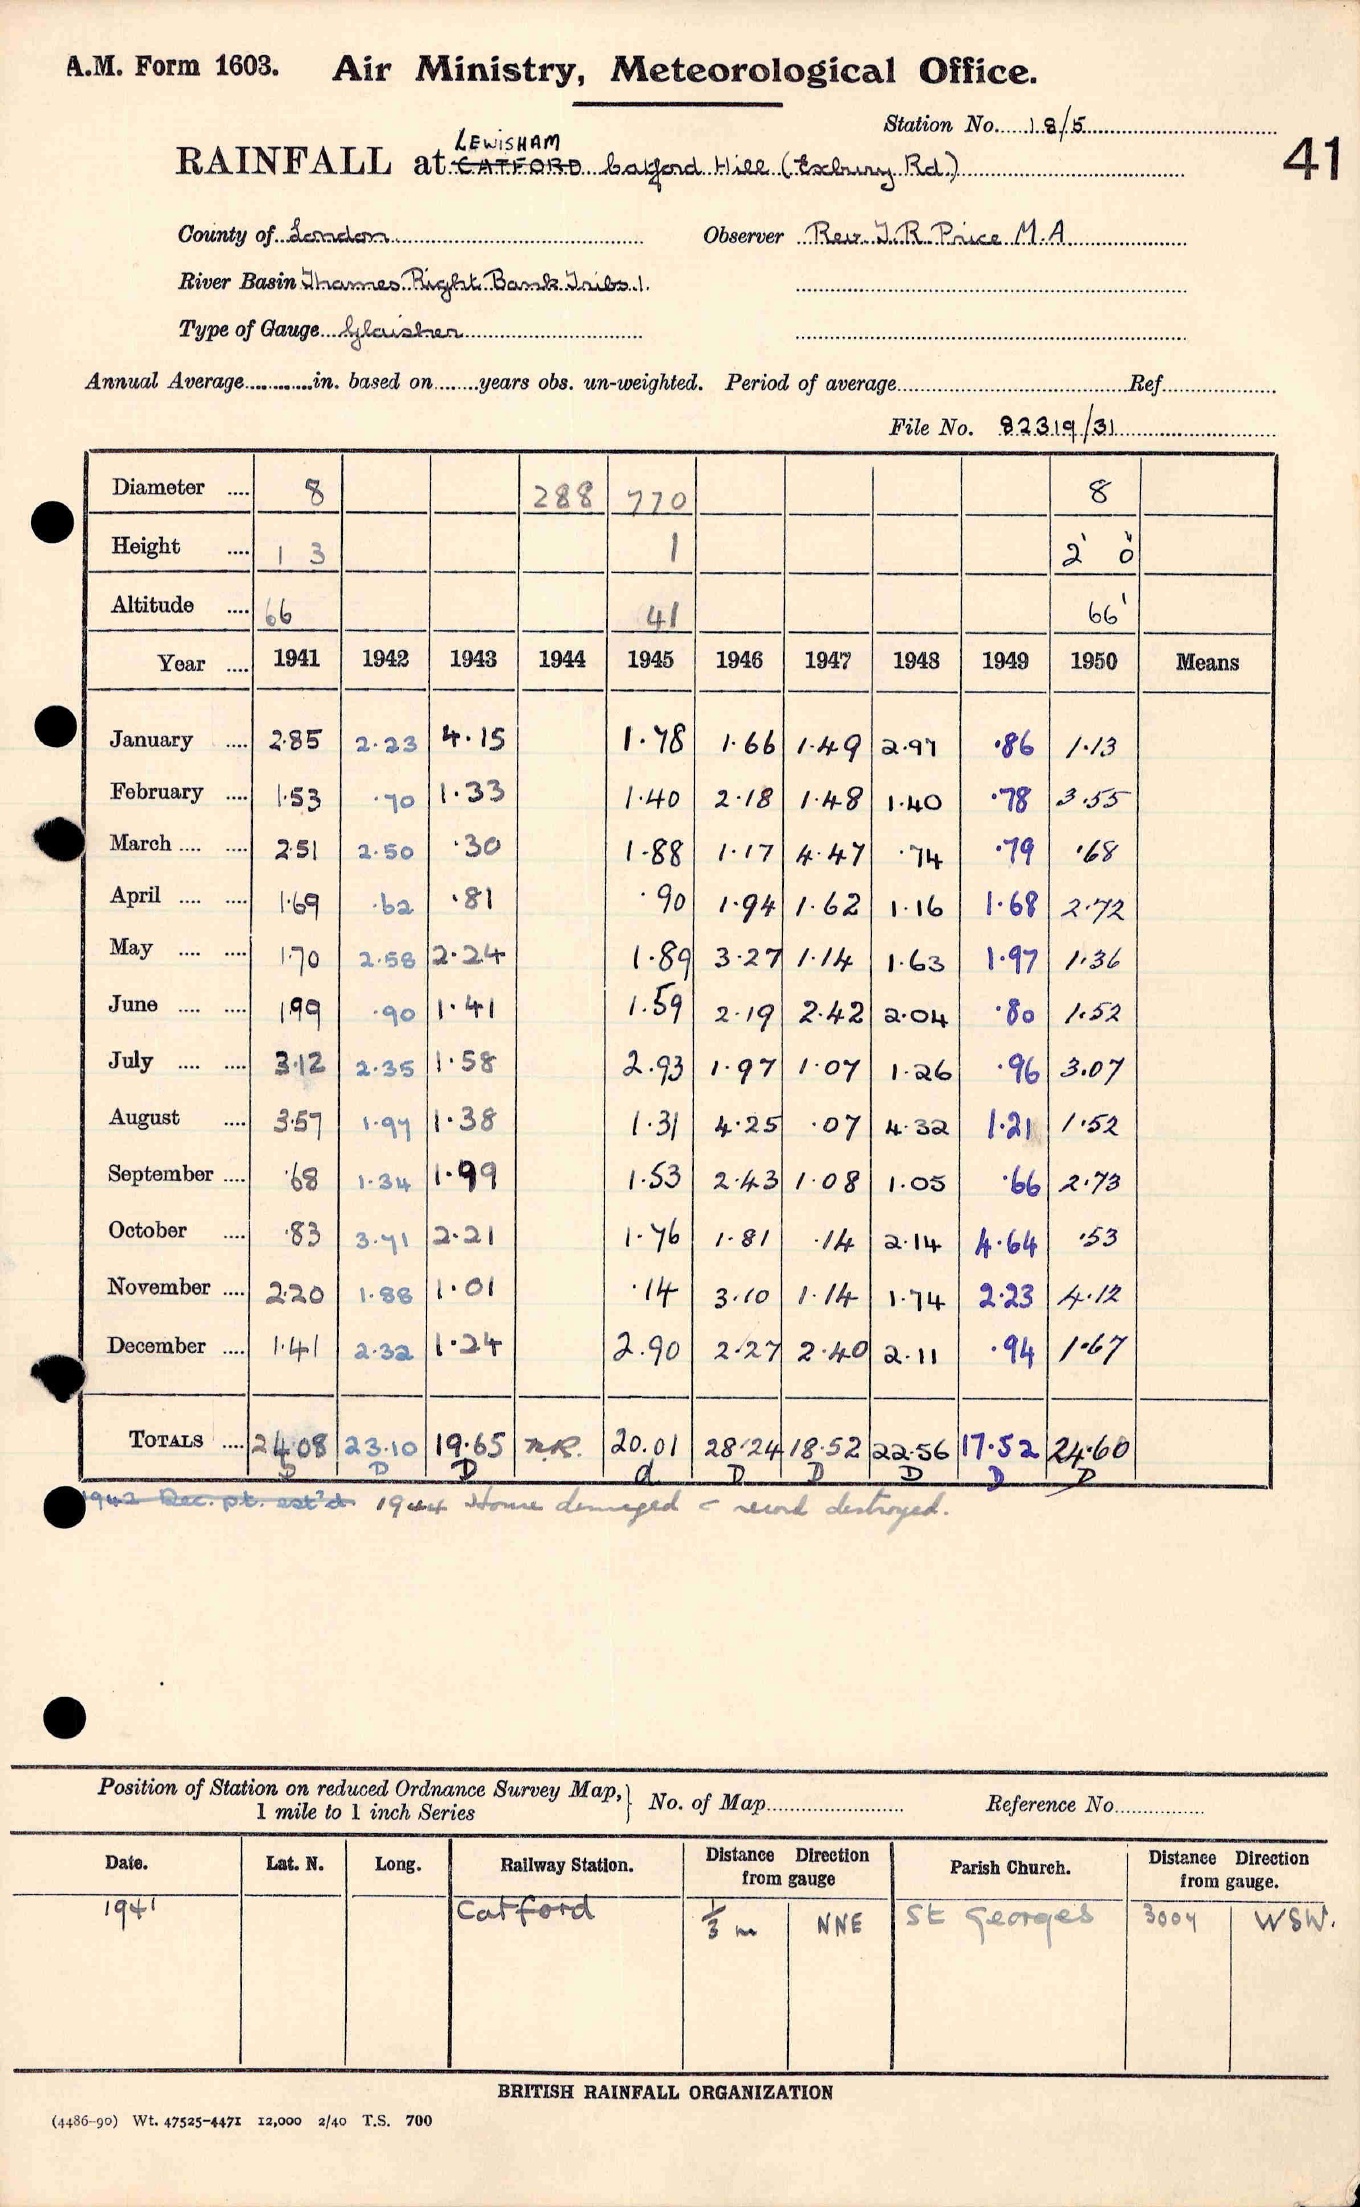 A.M. Form 1603. Air Ministry, Meteorological Office.
Station No. 18/5
41
LEWISHAM
RAINFALL at CATFORD Catford Hill (Exbury Rd.)
County of London Observer Rev. J. R. Price M.A
River Basin Thames Right Bank Tribs 1.
Type of Gauge Glaisher
Annual Average in. based on years obs. un-weighted. Period of average Ref.
File No. 82319/31
Diameter .... 8 288 770 8
Height .... 1 3 1 2' 0"
Altitude .... 66 41 66'
Year .... 1941 1942 1943 1944 1945 1946 1947 1948 1949 1950 Means
January .... 2.85 2.23 4.15 1.78 1.66 1.49 2.97 .86 1.13
February .... 1.53 .70 1.33 1.40 2.18 1.48 1.40 .78 3.55
March .... .... 2.51 2.50 .30 1.88 1.17 4.47 .74 .79 .68
April .... .... 1.69 .62 .81 .90 1.94 1.62 1.16 1.68 2.72
May .... .... 1.70 2.58 2.24 1.89 3.27 1.14 1.63 1.97 1.36
June .... .... 1.99 .90 1.41 1.59 2.19 2.42 2.04 .80 1.52
July .... .... 3.12 2.35 1.58 2.93 1.97 1.07 1.26 .96 3.07
August .... 3.57 1.97 1.38 1.31 4.25 .07 4.32 1.21 1.52
September .... .68 1.34 1.99 1.53 2.43 1.08 1.05 .66 2.73
October .... .83 3.71 2.21 1.76 1.81 .14 2.14 4.64 .53
November .... 2.20 1.88 1.01 .14 3.10 1.14 1.74 2.23 4.12
December .... 1.41 2.32 1.24 2.90 2.27 2.40 2.11 .94 1.67
TOTALS .... 24.08 23.10 19.65 N.R. 20.01 28.24 18.52 22.56 17.52 24.60
D D D d D D D D D
1942 Dec. pt. est'd. 1944 House damaged & record destroyed.
Position of Station on reduced Ordnance Survey Map, } No. of Map Reference No.
1 mile to 1 inch Series
Date. Lat. N. Long. Railway Station. Distance Direction from gauge Parish Church. Distance Direction from gauge.
1941 Catford 1/3 m NNE St Georges 300y WSW.
BRITISH RAINFALL ORGANIZATION
(4486-90) Wt. 47525-4471 12,000 2/40 T.S. 700